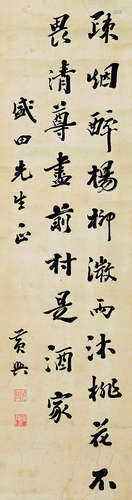 疎烟醉楊柳微雨沐桃花不
畏清尊盡前村是酒家
盛四先生正
黄興